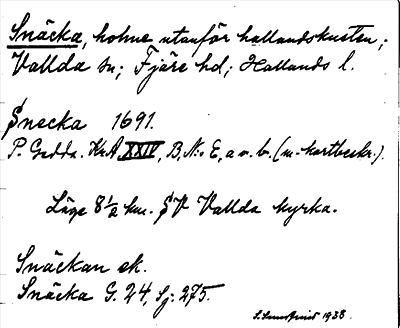 Snäcka, holme utanför hallandskusten;
Vallda sn; Fjäre hd; Hallands l.
Snecka 1691.
P. Gedda. KrA XXIV, B, N:o E, a o. b. (m. kartbeskr.).
Läge 8½ km. SV Vallda kyrka.
Snäckan ek.
Snäcka G. 24, Sj: 275.
1938